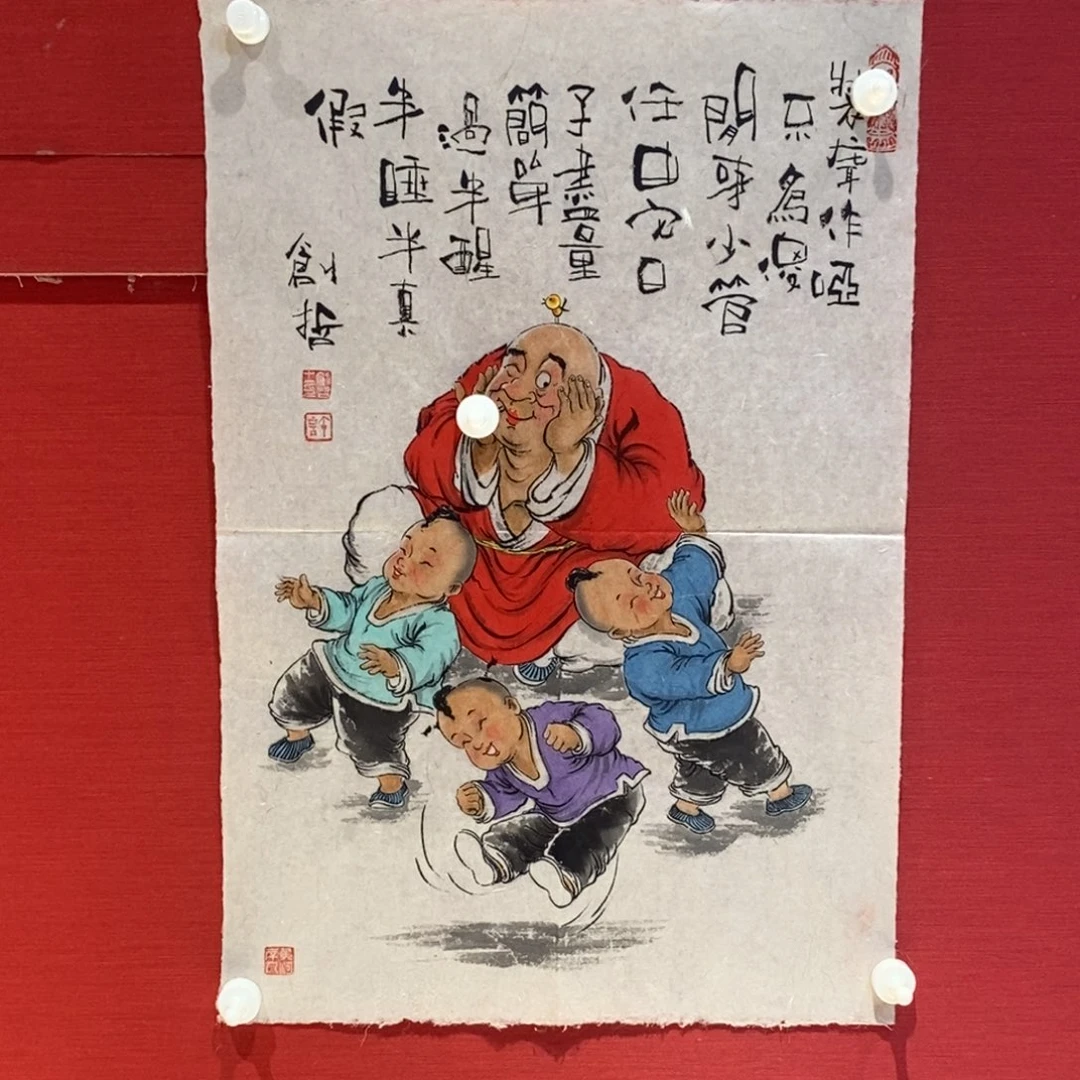 裝聾作啞
不為傻
閒事少管
任由它日
子盡量
簡單
過半醒
半睡半真
假
創哲